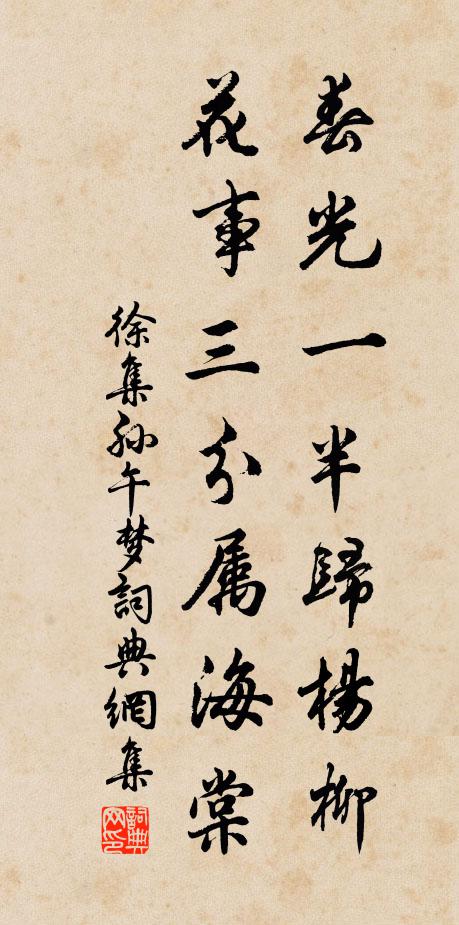 春光一半歸楊柳
花事三分属海棠
徐集孙午梦詞典網集
詞典网印